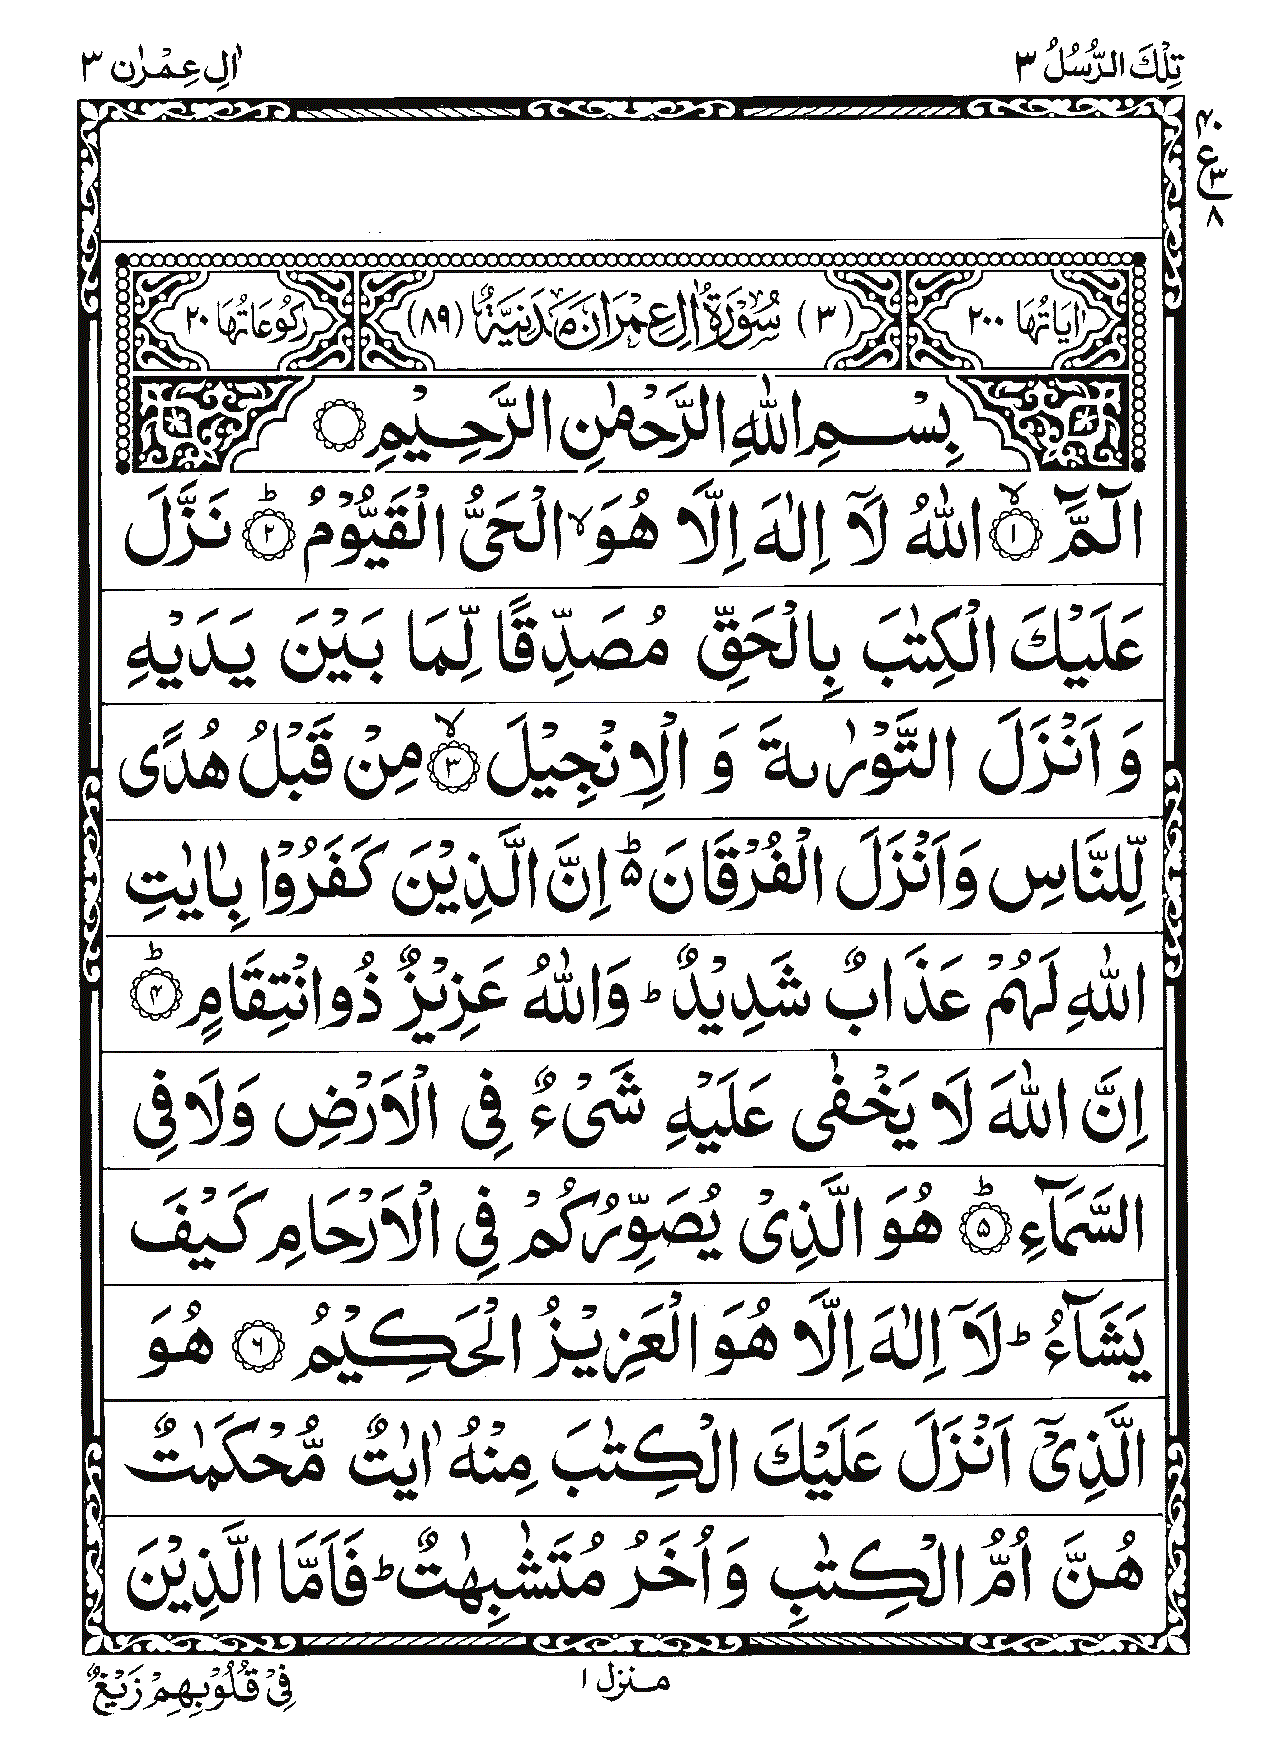 تِلْكَ الرُّسُلُ ٣
اٰلِ عِمْرٰن ٣
ع ٣ ٨
اٰیَاتُهَا ٢٠٠
(٣) سُوْرَةُ اٰلِ عِمْرَانَ مَدَنِیَّةٌ (٨٩)
رُكُوْعَاتُهَا ٢٠
بِسْمِ اللّٰهِ الرَّحْمٰنِ الرَّحِیْمِ
الٓمَّٓ ۙ﴿١﴾ اللّٰهُ لَاۤ اِلٰهَ اِلَّا هُوَ ۙ الْحَیُّ الْقَیُّوْمُ ؕ﴿٢﴾ نَزَّلَ
عَلَیْكَ الْكِتٰبَ بِالْحَقِّ مُصَدِّقًا لِّمَا بَیْنَ یَدَیْهِ
وَ اَنْزَلَ التَّوْرٰىةَ وَ الْاِنْجِیْلَ ۙ﴿٣﴾ مِنْ قَبْلُ هُدًی
لِّلنَّاسِ وَاَنْزَلَ الْفُرْقَانَ ؕ۵ اِنَّ الَّذِیْنَ كَفَرُوْا بِاٰیٰتِ
اللّٰهِ لَهُمْ عَذَابٌ شَدِیْدٌ ؕ وَاللّٰهُ عَزِیْزٌ ذُوانْتِقَامٍ ؕ﴿۴﴾
اِنَّ اللّٰهَ لَا یَخْفٰی عَلَیْهِ شَیْءٌ فِی الْاَرْضِ وَلَا فِی
السَّمَآءِ ؕ﴿۵﴾ هُوَ الَّذِیْ یُصَوِّرُكُمْ فِی الْاَرْحَامِ كَیْفَ
یَشَآءُ ؕ لَاۤ اِلٰهَ اِلَّا هُوَ الْعَزِیْزُ الْحَكِیْمُ ﴿۶﴾ هُوَ
الَّذِیْۤ اَنْزَلَ عَلَیْكَ الْكِتٰبَ مِنْهُ اٰیٰتٌ مُّحْكَمٰتٌ
هُنَّ اُمُّ الْكِتٰبِ وَ اُخَرُ مُتَشٰبِهٰتٌ ؕ فَاَمَّا الَّذِیْنَ
منزل ١
فِیْ قُلُوْبِهِمْ زَیْغٌ